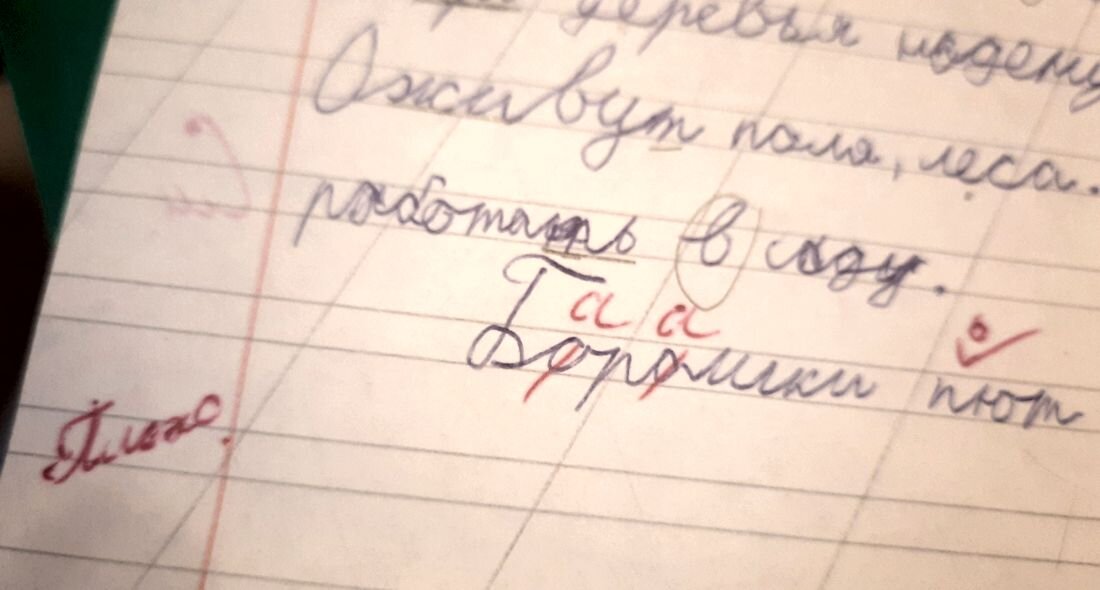 деревья
Оживут поля, леса.
работать в саду.
а а
Борошки пют
Плохо